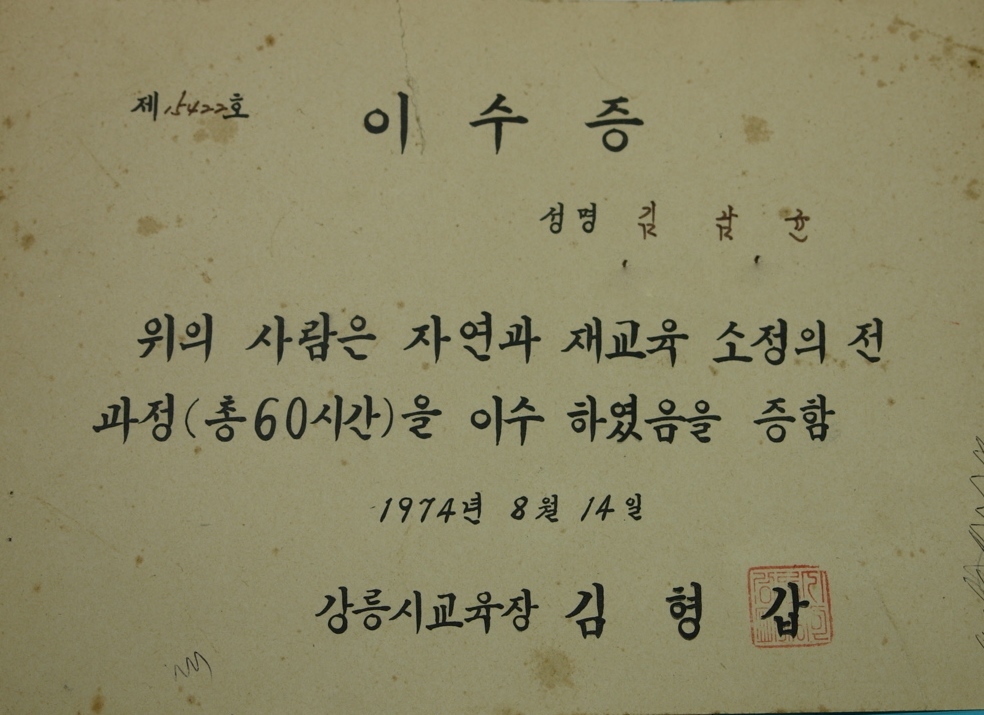 제 15422호
이 수 증
성명 김 삼 윤
위의 사람은 자연과 재교육 소정의 전
과정(총60시간)을 이수 하였음을 증함
1974년 8월 14일
강릉시교육장 김 형 갑